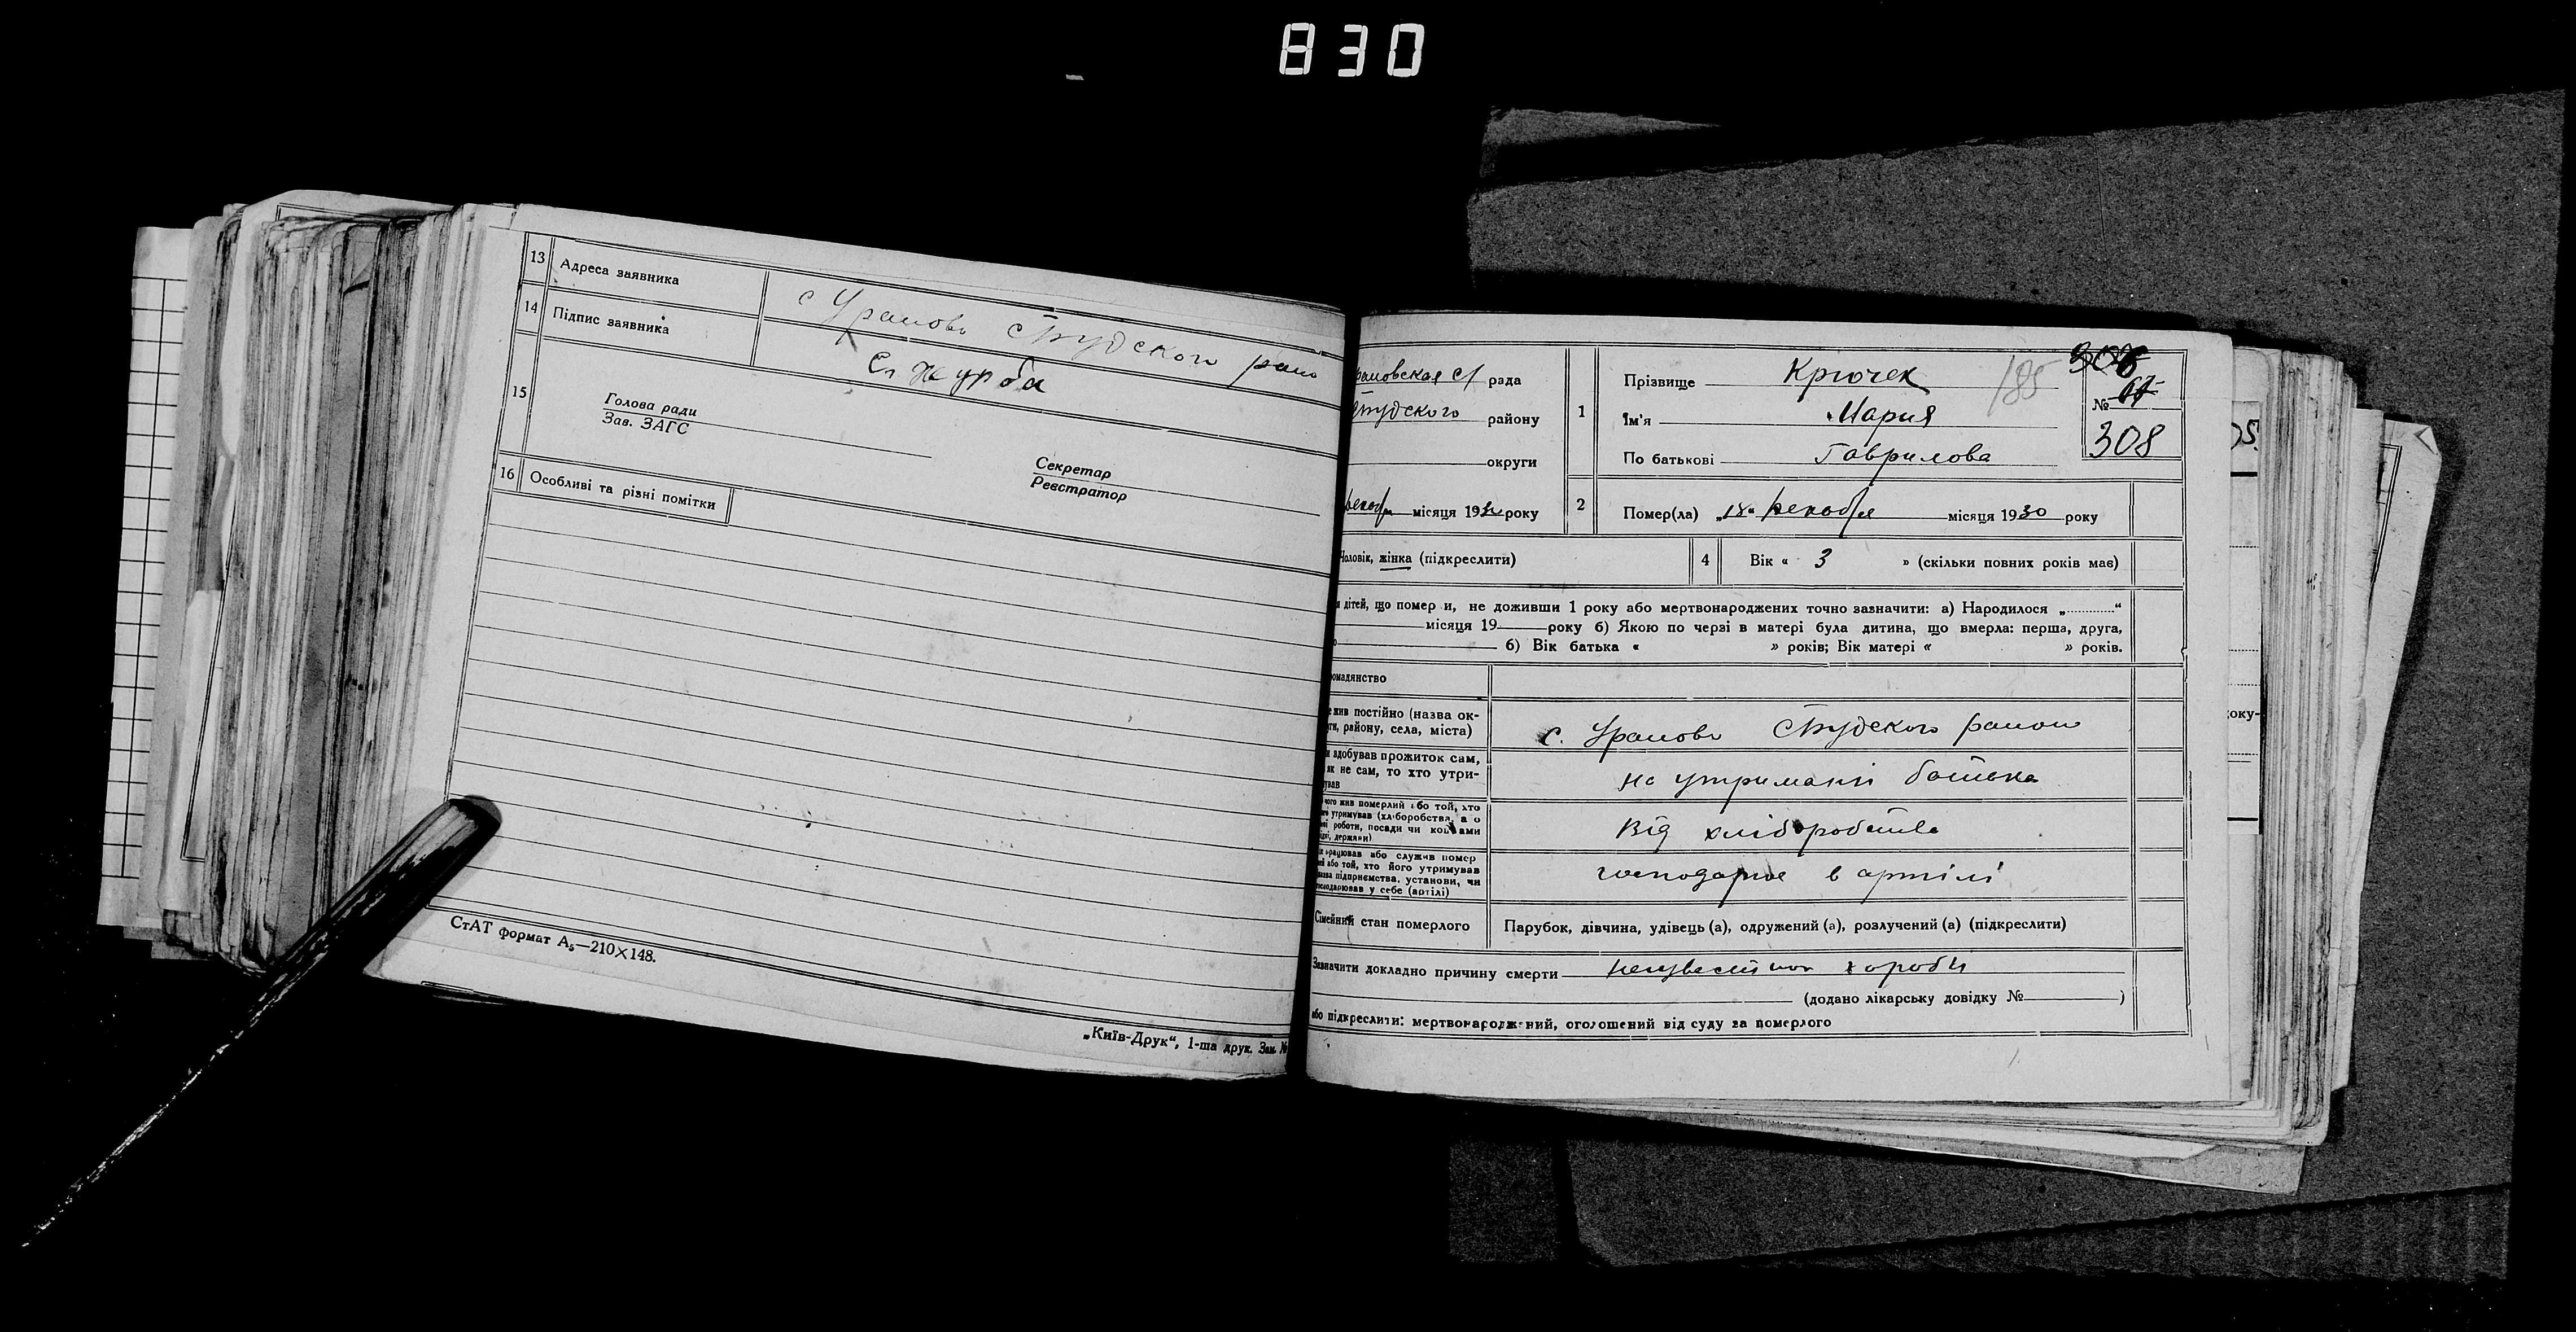 830
13 Адреса заявника
с Уралово Студского рано
14 Підпис заявника
Сл Журба
15
Голова ради
Зав. ЗАГС
Секретар
Реєстратор
16 Особливі та різні помітки
СтАТ формат А₅—210×148.
„Київ-Друк“, 1-ша друк. Зам. №
раловская с/ рада
Студского району
округи
1
Прізвище Крючек
Ім'я Мария
По батькові Гаврилова
185
306
№ 67
308
декабря місяця 1930 року
2
Помер(ла) „18“ декабря місяця 1930 року
Чоловік, жінка (підкреслити)
4 Вік « 3 » (скільки повних років має)
дітей, що помер и, не доживши 1 року або мертвонароджених точно зазначити: а) Народилося „ “
місяця 19 року б) Якою по черзі в матері була дитина, що вмерла: перша, друга,
б) Вік батька « » років; Вік матері « » років.
омадянство
жив постійно (назва ок-
ги, району, села, міста)
с. Уралово Студского району
здобував прожиток сам,
як не сам, то хто утри-
ував
на утриманні батька
чого жив померлий або той, хто
його утримував (хліборобства, а о
роботи, посади чи коштами
держави)
Від хліборобства
працював або служив помер
або той, хто його утримував
назва підприємства, установи, чи
господарював у себе (артілі)
господарює в артілі
Сімейний стан померлого
Парубок, дівчина, удівець (а), одружений (а), розлучений (а) (підкреслити)
Зазначити докладно причину смерти неизвестной хороби
(додано лікарську довідку № )
або підкреслити: мертвонароджений, оголошений від суду за померлого
оку-